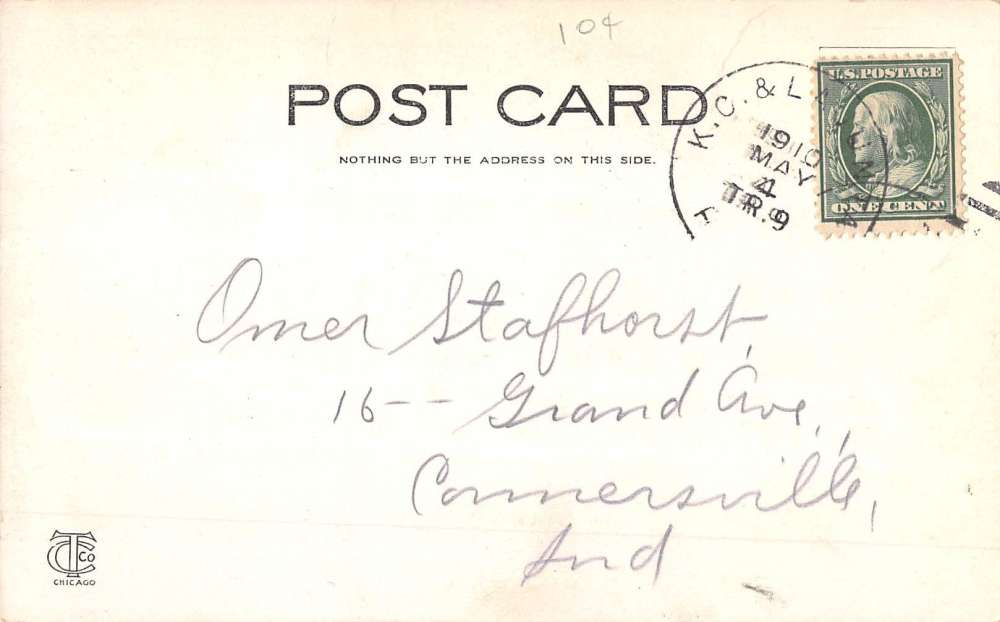 10¢
POST CARD
NOTHING BUT THE ADDRESS ON THIS SIDE.
K.C. & LA JUNTA
1910
MAY
4
TR.9
U.S. POSTAGE
ONE CENT
Omer Stafhorst,
16-- Grand Ave.,
Connersville,
Ind
TC Co
CHICAGO